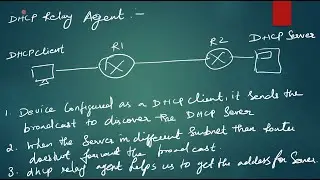 DHCP Relay Agent :-
R1
R2
DHCP Server
DHCP Client
1. Device Configured as a DHCP Client, it sends the
broadcast to discover the DHCP Sever
2. When the Server in different Subnet then router
doesn't forward the broadcast.
3. dhcp relay agent helps us to get the address for Server.